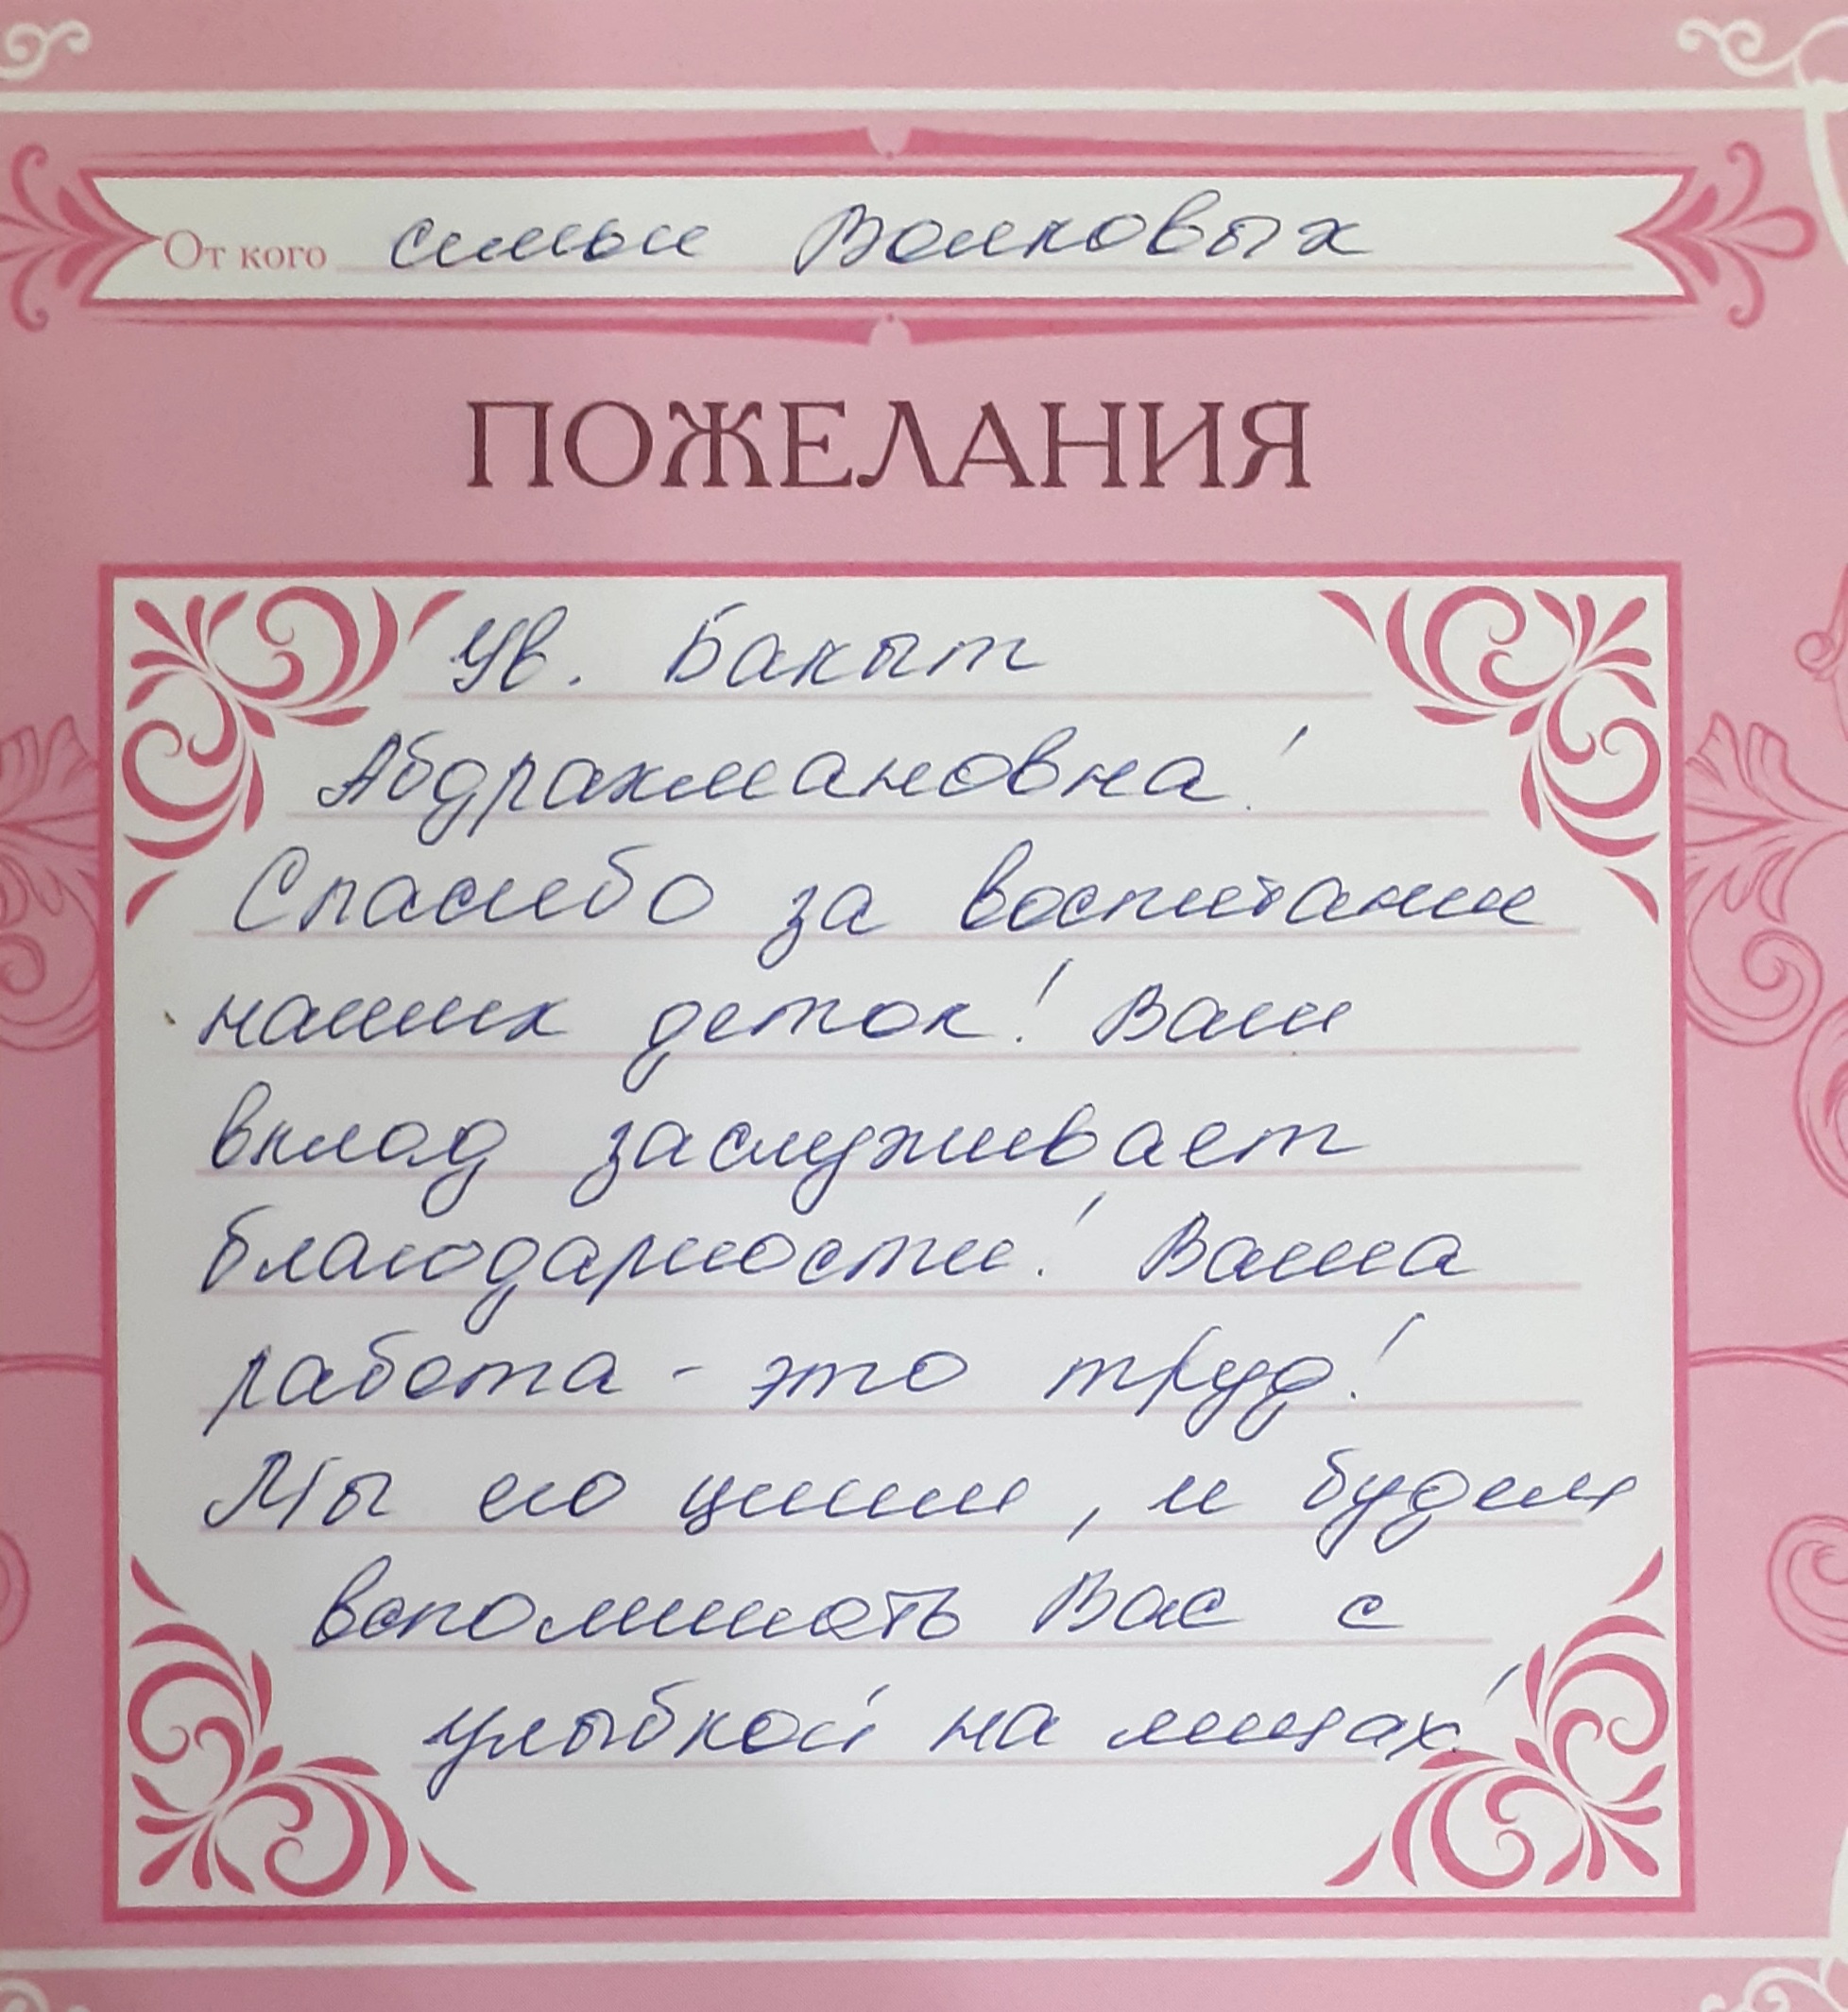 От кого семьи Волковых
ПОЖЕЛАНИЯ
Ув. Бакыт
Абдрахмановна!
Спасибо за воспитание
наших деток! Ваш
вклад заслуживает
благодарности! Ваша
работа - это труд!
Мы его ценим, и будем
вспоминать Вас с
улыбкой на лицах!